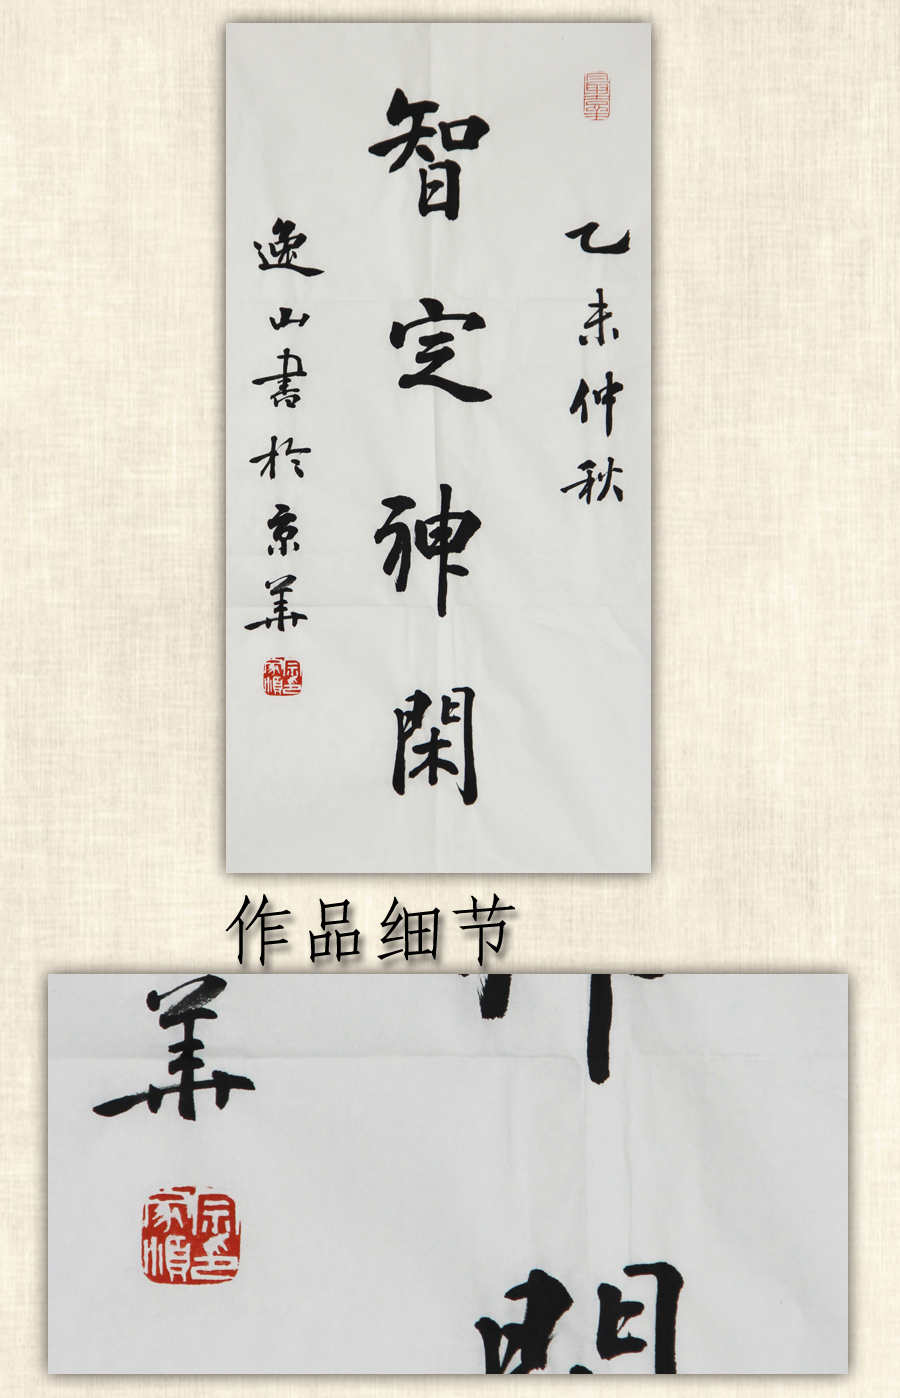 乙未仲秋
智定神閑
逸山書於京華
作品细节
華